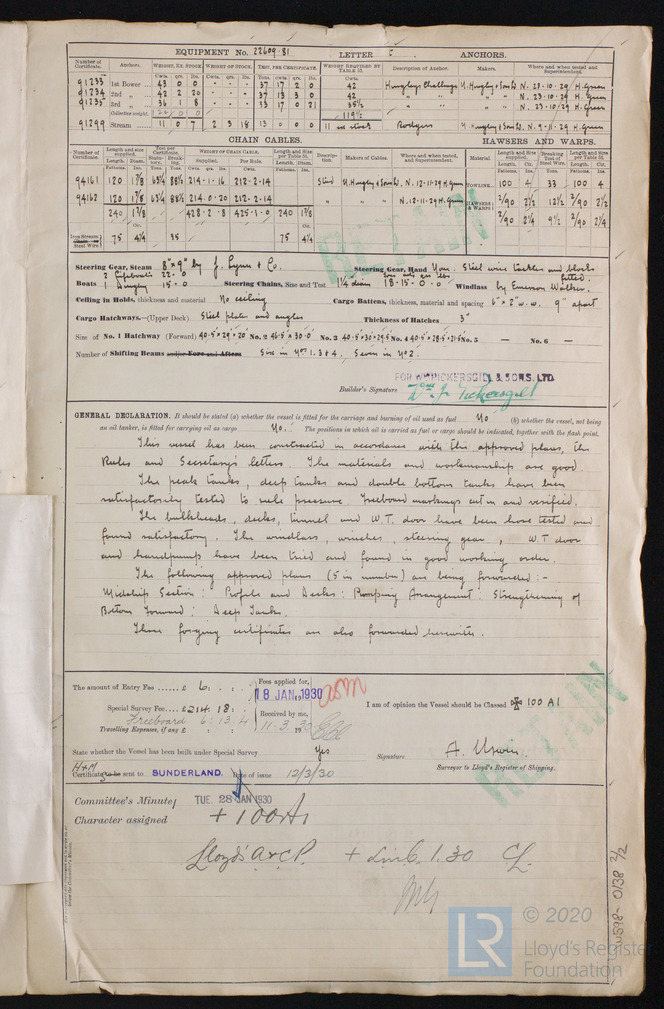 EQUIPMENT No. 22609.81 LETTER ANCHORS.
Number of Certificate. Anchors. WEIGHT, EX. STOCK WEIGHT OF STOCK. TEST, PER CERTIFICATE. WEIGHT REQUIRED BY TABLE 53. Description of Anchor. Makers. Where and when tested and Superintendent.
Cwts. qrs. lbs. Cwts. qrs. lbs. Tons. cwts. qrs. lbs. Cwts.
91233 1st Bower 43 0 0 37 17 2 0 42 N. 23.10.29 H. Green
91234 2nd " 42 2 20 37 13 3 0 42 " " N. 23.10.29 H. Green
91235 3rd " 36 1 8 33 17 0 21 35½ " " N. 23.10.29 H. Green
Collective weight 119½
91299 Stream 11 0 7 2 3 18 13 0 0 0 11 Rodgers N. 9.11.29 H. Green
CHAIN CABLES. HAWSERS AND WARPS.
Number of Certificate. Length and size supplied. Test per Certificate. WEIGHT OF CHAIN CABLE. Length and size per Table 53. Description. Makers of Cables. Where and when tested, and Superintendent. Material Length and size supplied. Breaking Test of Steel Wire. Length and size per Table 53.
Length. Diam. Statutory. Breaking. Supplied. Per Rule. Length. Diam. Length. Cir. Length. Cir.
94161 120 1⅞ 63¼ 88½ 214-1-16 212-2-14 Stud N. 12.11.29 H. Green TOWLINE 100 4 33 100 4
94162 120 1⅞ 63¼ 88½ 214-0-20 212-2-14 " " " N. 12.11.29 H. Green HAWSERS & WARPS 2/90 2½ 12½ 2/90 2½
240 1⅞ 428-2-8 425-1-0 240 1⅞ 2/90 2¼ 9½ 2/90 2¼
Steel Wire 75 4¼ 35 75 4¼
Steering Gear, Steam 8"x9" by J. Lynn & Co. Steering Gear, Hand Yes. Steel wire tackles and blocks fitted.
Boats 2 Lifeboats 22-0
1 Dinghy 15-0 Steering Chains, Size and Test 1¼ diam 18-15-0-0 Windlass by Emerson Walker.
Ceiling in Holds, thickness and material No ceiling Cargo Battens, thickness, material and spacing 6"x2" w.w. 9" apart
Cargo Hatchways.—(Upper Deck) Steel plates and angles Thickness of Hatches 3"
Size of No. 1 Hatchway (Forward) 40.5x29x20 No. 2 46.5x30.0 No. 3 40.5x30x29.5 No. 4 40.5x28.5x21.5 No. 5 — No. 6 —
Number of Shifting Beams and/or Fore and Afters Six in Nos 1.3 & 4. Seven in No 2.
RETAIN
FOR WM PICKERSGILL & SONS, LTD.
Builder's Signature
GENERAL DECLARATION. It should be stated (a) whether the vessel is fitted for the carriage and burning of oil used as fuel No (b) whether the vessel, not being
an oil tanker, is fitted for carrying oil as cargo No. The positions in which oil is carried as fuel or cargo should be indicated, together with the flash point.
This vessel has been constructed in accordance with the approved plans, the
Rules and Secretary's letters. The materials and workmanship are good
The peak tanks, deep tanks and double bottom tanks have been
satisfactorily tested to rule pressure. Freeboard markings cut in and verified.
The bulkheads, decks, tunnel and W.T. door have been hose tested and
found satisfactory. The windlass, winches, steering gear, W.T door
and handpump have been tried and found in good working order.
The following approved plans (5 in number) are being forwarded :-
Midship Section : Profile and Decks : Pumping Arrangement : Strengthening of
Bottom Forward : Deep Tanks.
Three forging certificates are also forwarded herewith.
The amount of Entry Fee £ 6 : : Fees applied for,
18 JAN. 1930
Special Survey Fee £ 214.18 : Received by me,
Freeboard 6:13:4 11.3.30
Travelling Expenses, if any £
I am of opinion the Vessel should be Classed ✠ 100 A1
State whether the Vessel has been built under Special Survey Yes Signature
Surveyor to Lloyd's Register of Shipping.
RETAIN
H+M
Certificate sent to SUNDERLAND. Date of issue 12/3/30
Committee's Minute TUE. 28 JAN 1930
Character assigned + 100A1
Lloyd's A&CP. + LMC 1.30 CL.
W598-0138 2/2
LR
© 2020
Lloyd's Register
Foundation